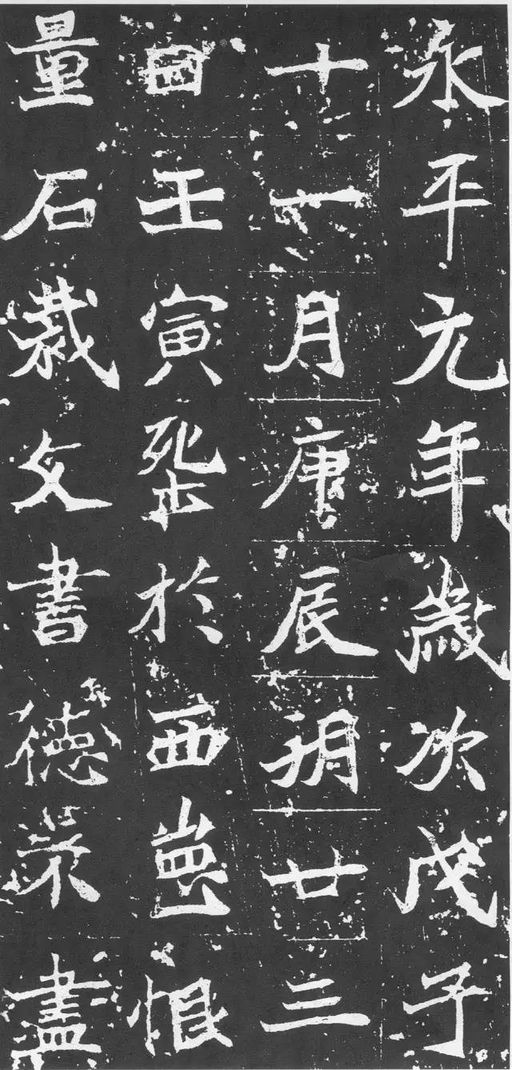 永平元年歲次戊子
十一月庚辰朔廿三
日壬寅窆於西崗恨
量石裁文書德榮盡